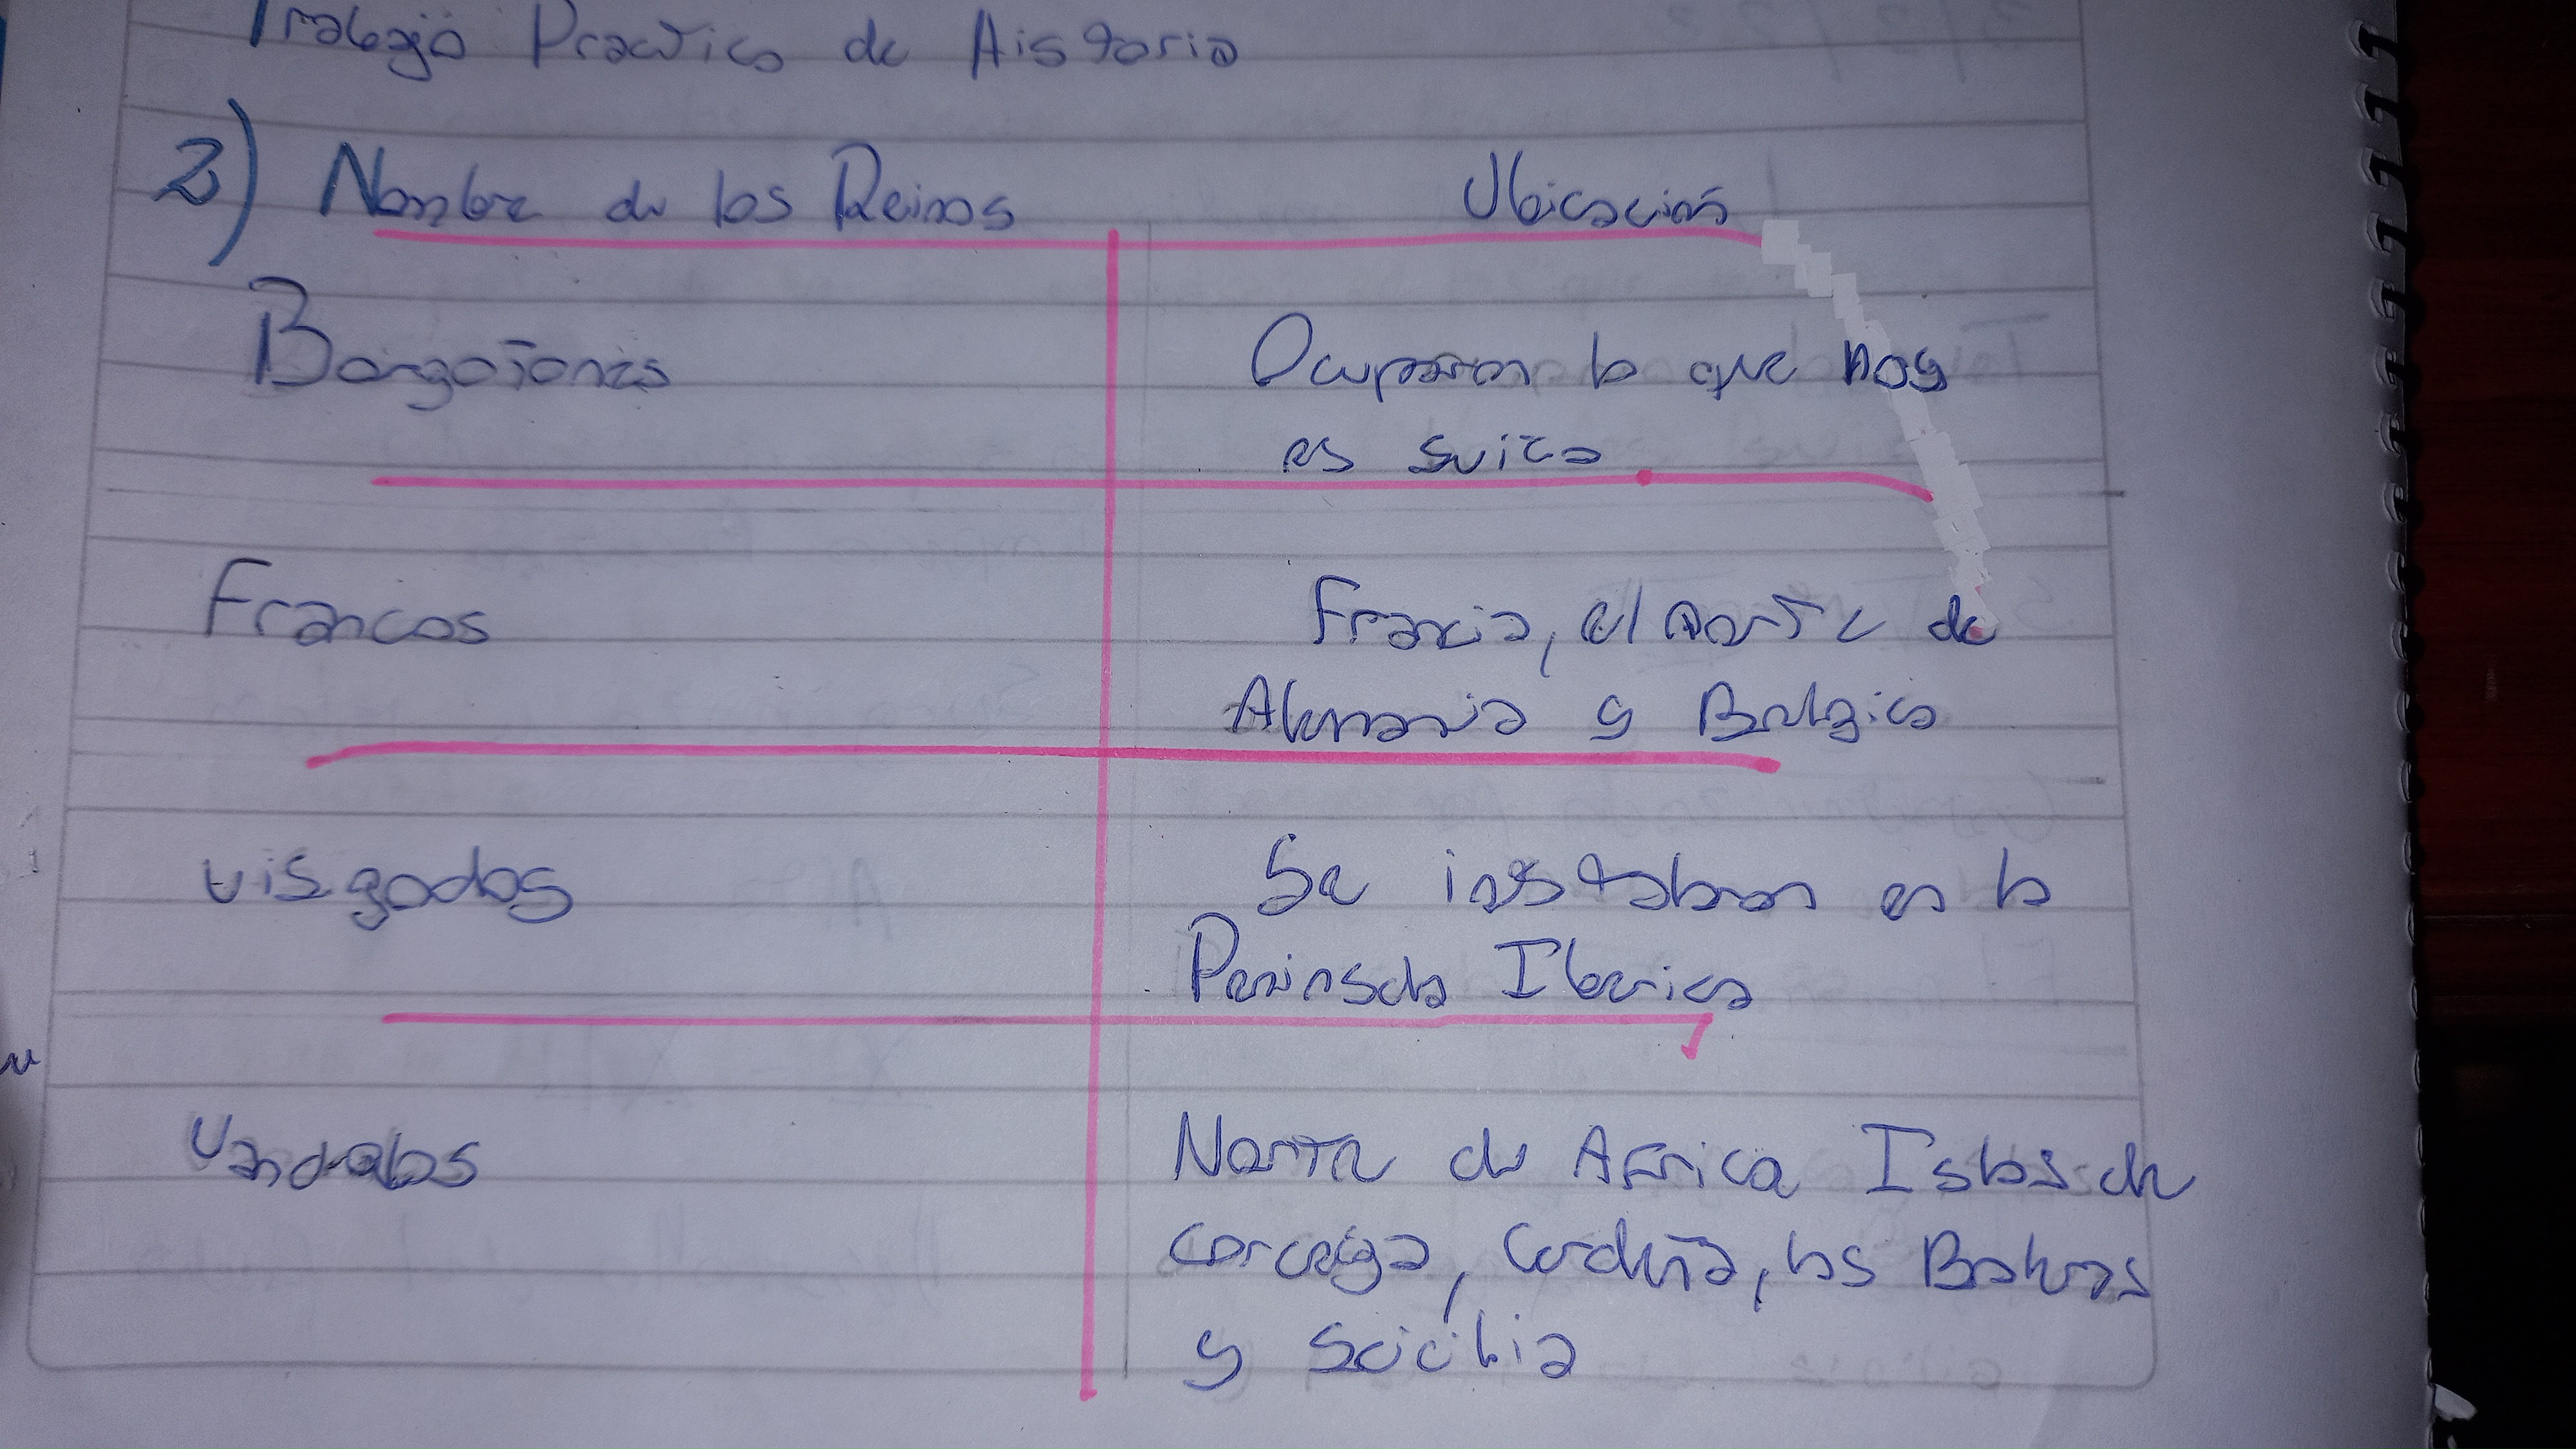 Trabajo Practico de Historia
2) Nombre de los Reinos Ubicacion
Borgoñones Ocuparon lo que hoy
es suiza
Francos Francia, el norte de
Alemania y Belgica
visgodos Se instalaron en la
Peninsula Iberica
Vandalos Norte de Africa Islas de
Corcega, Cerdeña, las Baleares
y Scicilia